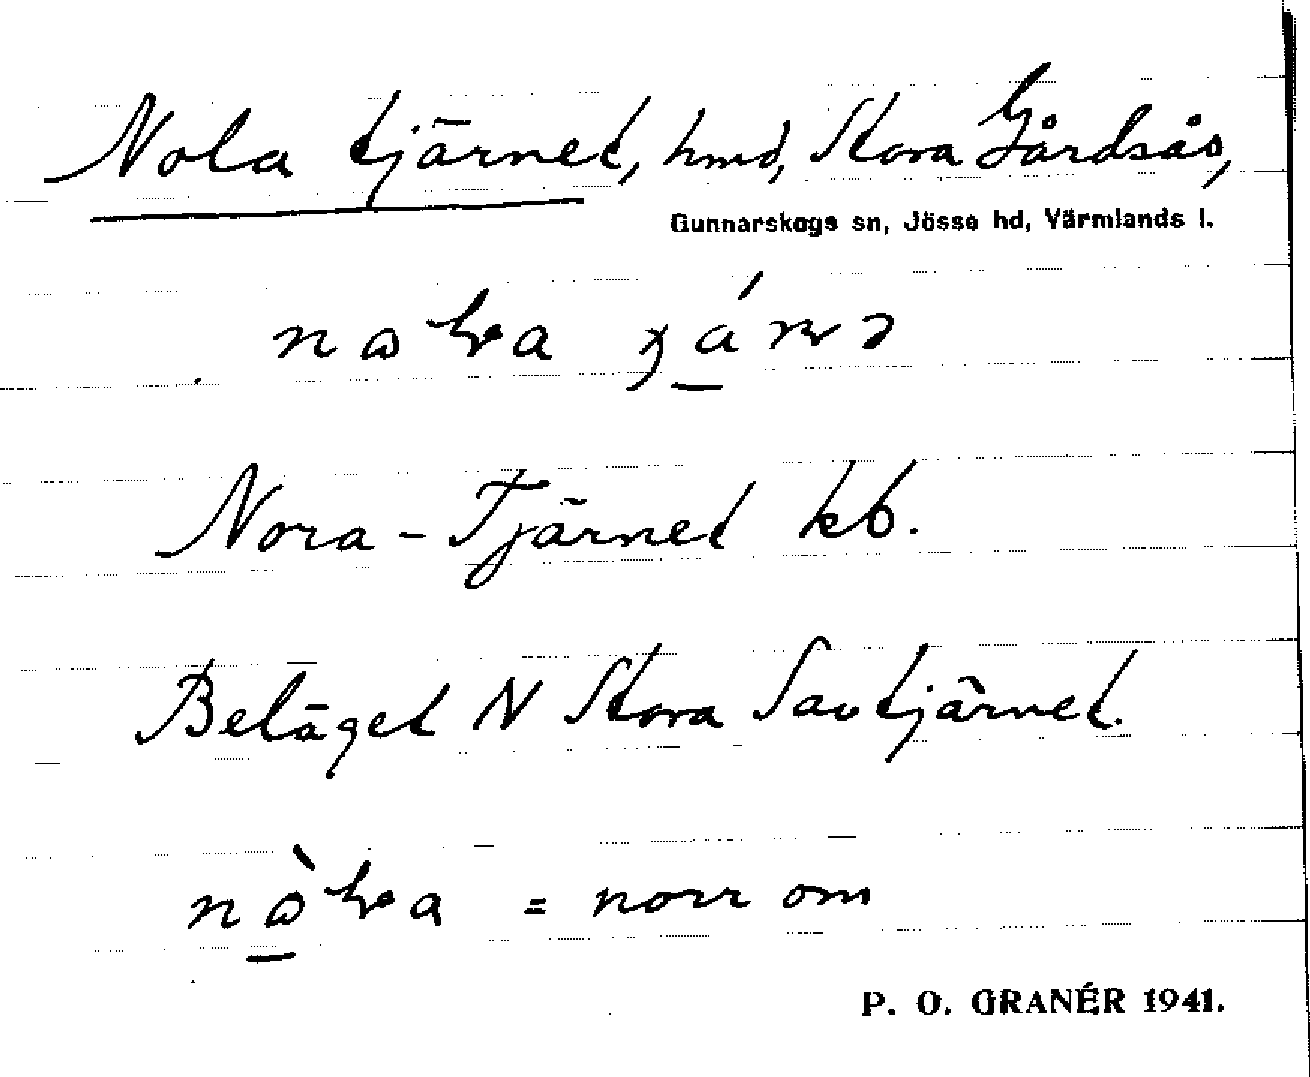 Nola tjärnet, hmd, Stora Gårdsås,
Gunnarskogs sn, Jösse hd, Värmlands l.
Nora-Tjärnet kb.
Beläget N Stora Savtjärnet.
= norr om
P. O. GRANÉR 1941.